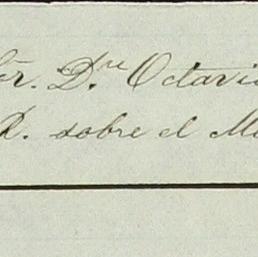 Sór. D.ʳᵉ Octavio
R. sobre el M